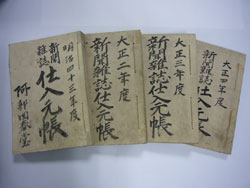 明治四十三年度
新聞
雜誌
仕入元帳
阿部春堂
大正二年度
新聞雜誌仕入元帳
大正三年度
新聞雜誌仕入元帳
大正四年度
新聞雜誌仕入元帳